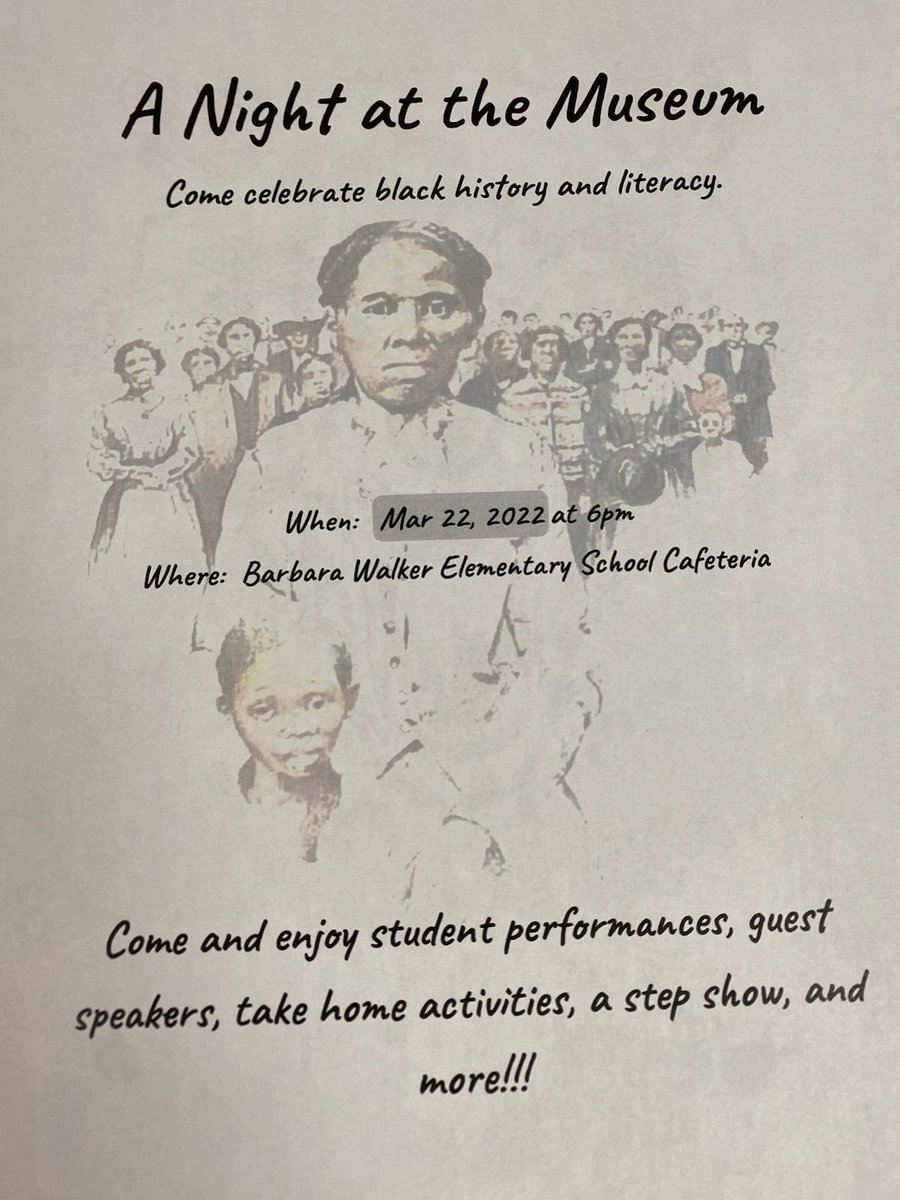 A Night at the Museum
Come celebrate black history and literacy.
When: Mar 22, 2022 at 6pm
Where: Barbara Walker Elementary School Cafeteria
Come and enjoy student performances, guest
speakers, take home activities, a step show, and
more!!!